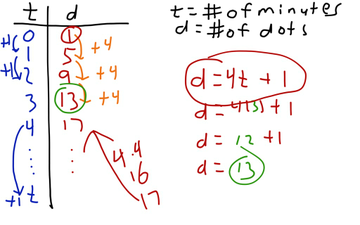 t d
0 1
+1 1 5 +4
+1 2 9 +4
3 13 +4
4 17
4.4
16
+1 t 17
t = # of minutes
d = # of dots
d = 4t + 1
d = 4(3) + 1
d = 12 + 1
d = 13